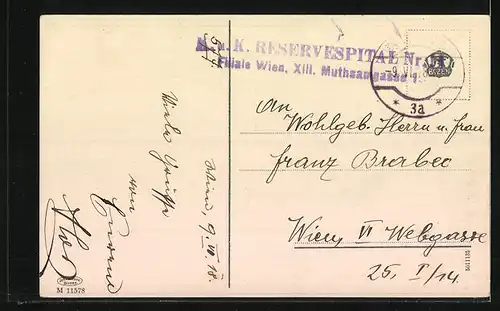 K. u. K. RESERVESPITAL Nr. 11
Filiale Wien, XIII. Muthsamgasse
3a
An
Wohlgeb. Herrn u. Frau
Franz Brabec
Wien, VI Webgasse
25. I/14.
Wien, 9. VI. 18.
Viele Grüsse
von
M 11578
5011135